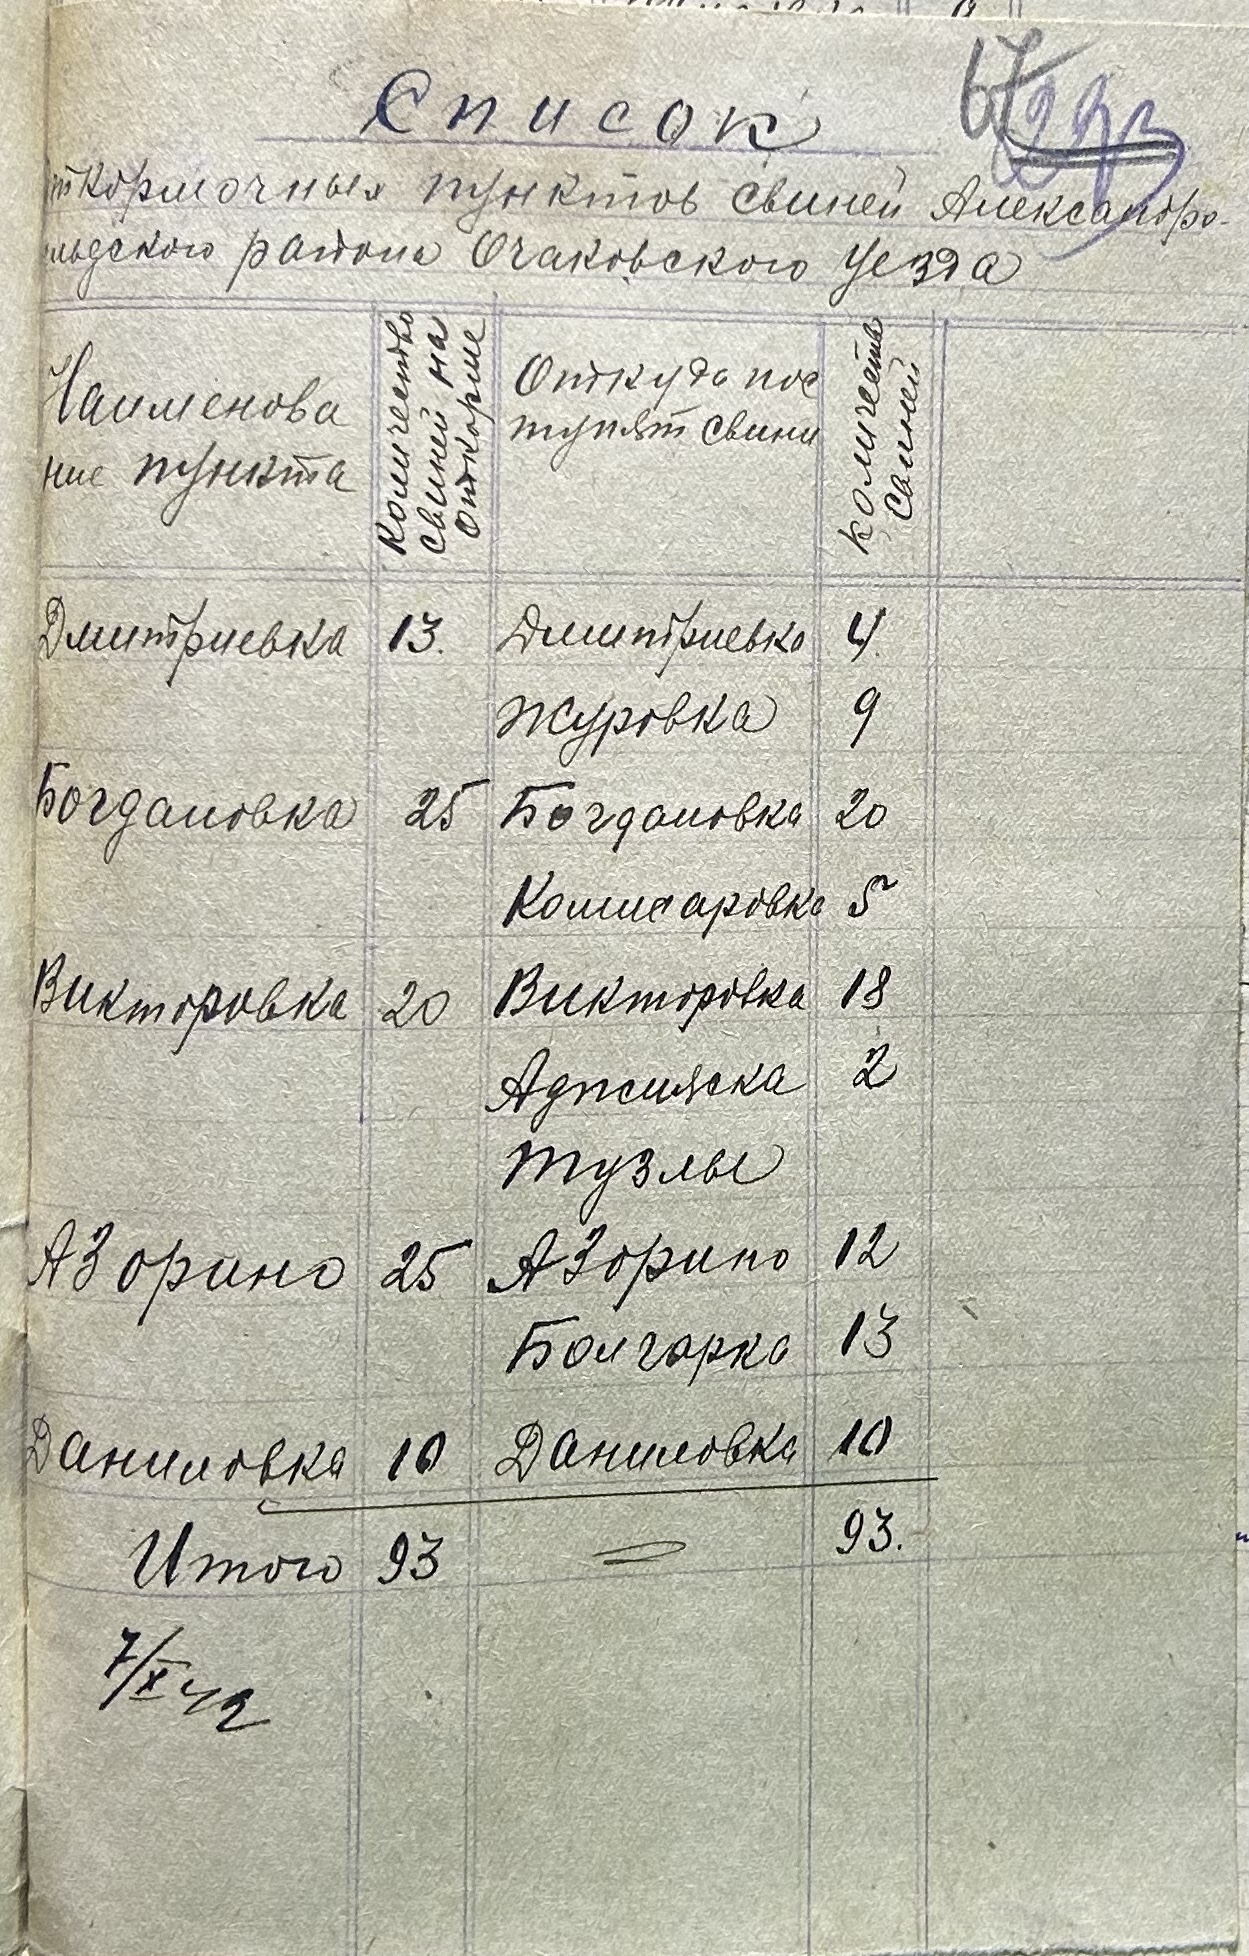 67
Список
откормочных пунктов свиней Александро-
льдского района Очаковского уезда
Наименова
ние пункта
Количество
свиней на
откорме
Откуда пос
тупят свиньи
Количеств
свиней
Дмитриевка 13. Дмитриевка 4.
Журовка 9
Богдановка 25 Богдановка 20
Комисаровка 5
Викторовка 20 Викторовка 18
Аджияска 2
Тузлы
АЗорино 25 АЗорино 12
Болгарка 13
Даниловка 10 Даниловка 10
Итого 93 = 93.
7/X 42